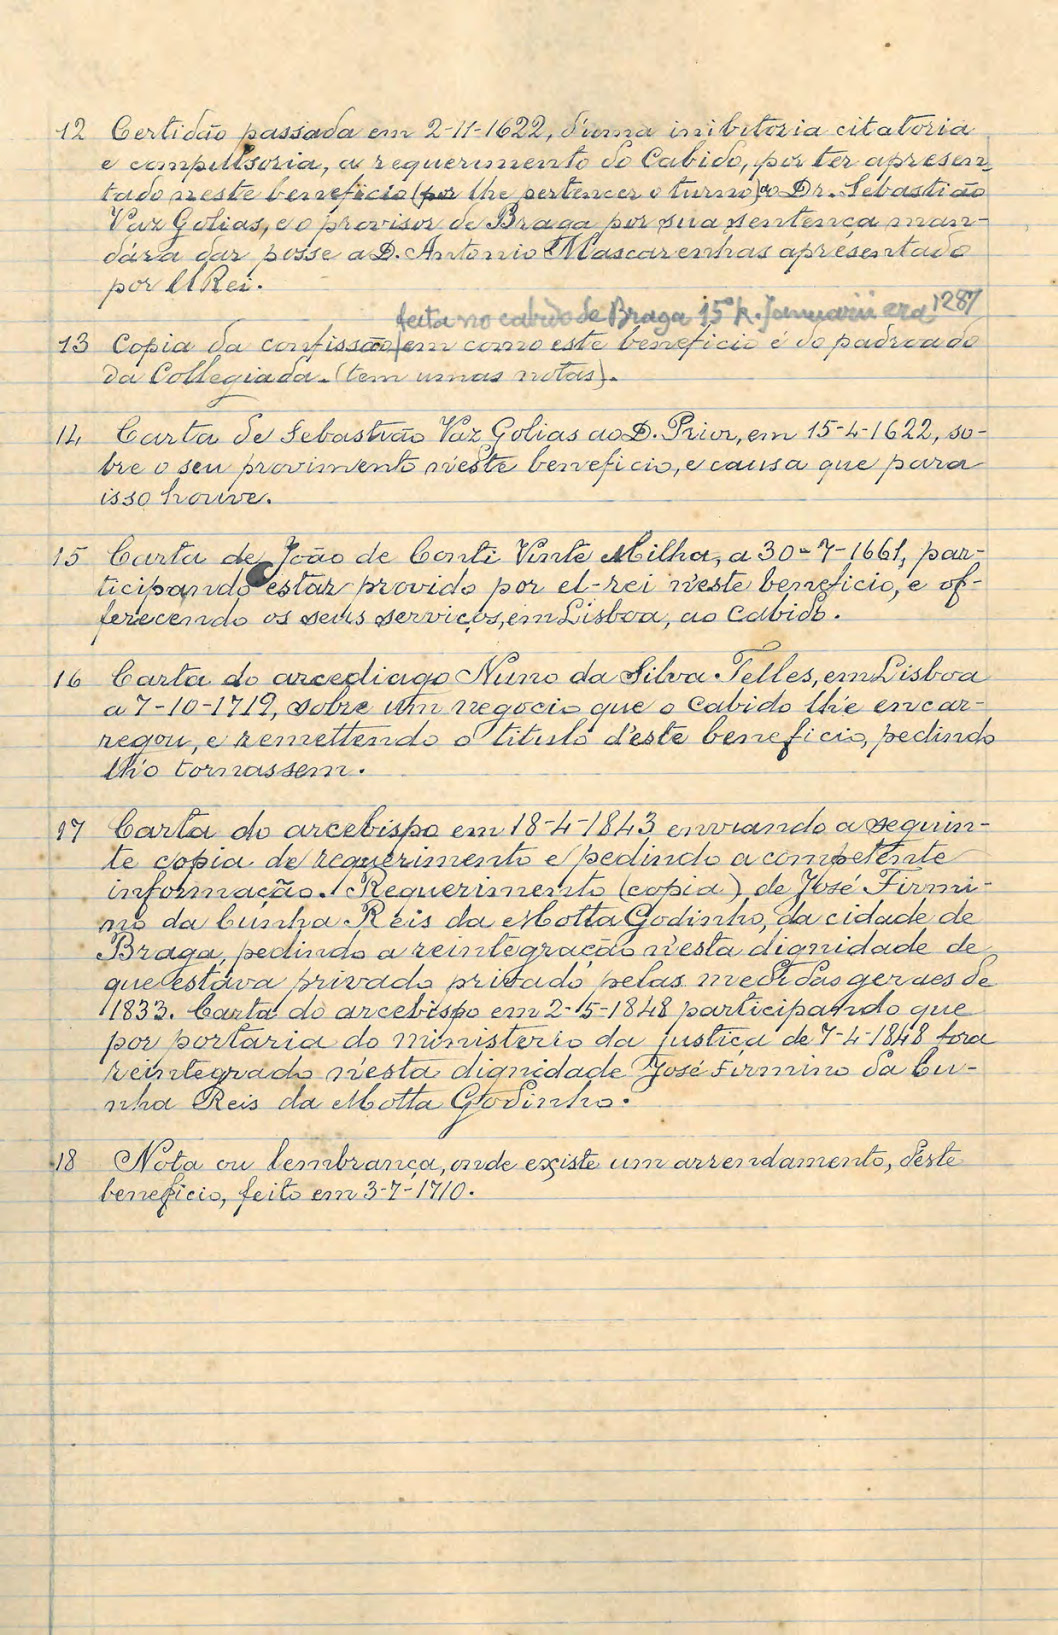 12 Certidão passada em 2-11-1622, d'uma inibitoria citatoria
e compulsoria, a requerimento do Cabido, por ter apresen-
tado neste beneficio (por lhe pertencer o turno) ao Dr. Sebastião
Vaz Golias, e o provisor de Braga por sua sentença man-
dára dar posse a D. Antonio Mascarenhas apresentado
por El Rei.
feita no cabido de Braga 15 k. Januarii era 1287
13 Copia da confissão em como este beneficio é do padroado
da Collegiada. (tem umas notas).
14 Carta de Sebastião Vaz Golias ao D. Prior, em 15-4-1622, so-
bre o seu provimento n'este beneficio, e causa que para
isso houve.
15 Carta de João de Conti Vinte Milha, a 30-7-1661, par-
ticipando estar provido por el-rei n'este beneficio, e of-
ferecendo os seus serviços, em Lisboa, ao Cabido.
16 Carta do arcediago Nuno da Silva Telles, em Lisboa
a 7-10-1719, sobre um negocio que o Cabido lh'e encar-
regou, e remettendo o titulo d'este beneficio, pedindo
lh'o tornassem.
17 Carta do arcebispo em 18-4-1843 enviando a seguin-
te copia de requerimento e pedindo a competente
informação. Requerimento (copia) de José Firmi-
no da Cunha Reis da Motta Godinho, da cidade de
Braga, pedindo a reintegração n'esta dignidade de
que estava privado privado pelas medidas geraes de
1833. Carta do arcebispo em 2-5-1848 participando que
por portaria do ministerio da justiça de 7-4-1848 fora
reintegrado n'esta dignidade José Firmino da Cu-
nha Reis da Motta Godinho.
18 Nota ou lembrança, onde existe um arrendamento, d'este
beneficio, feito em 3-7-1710.